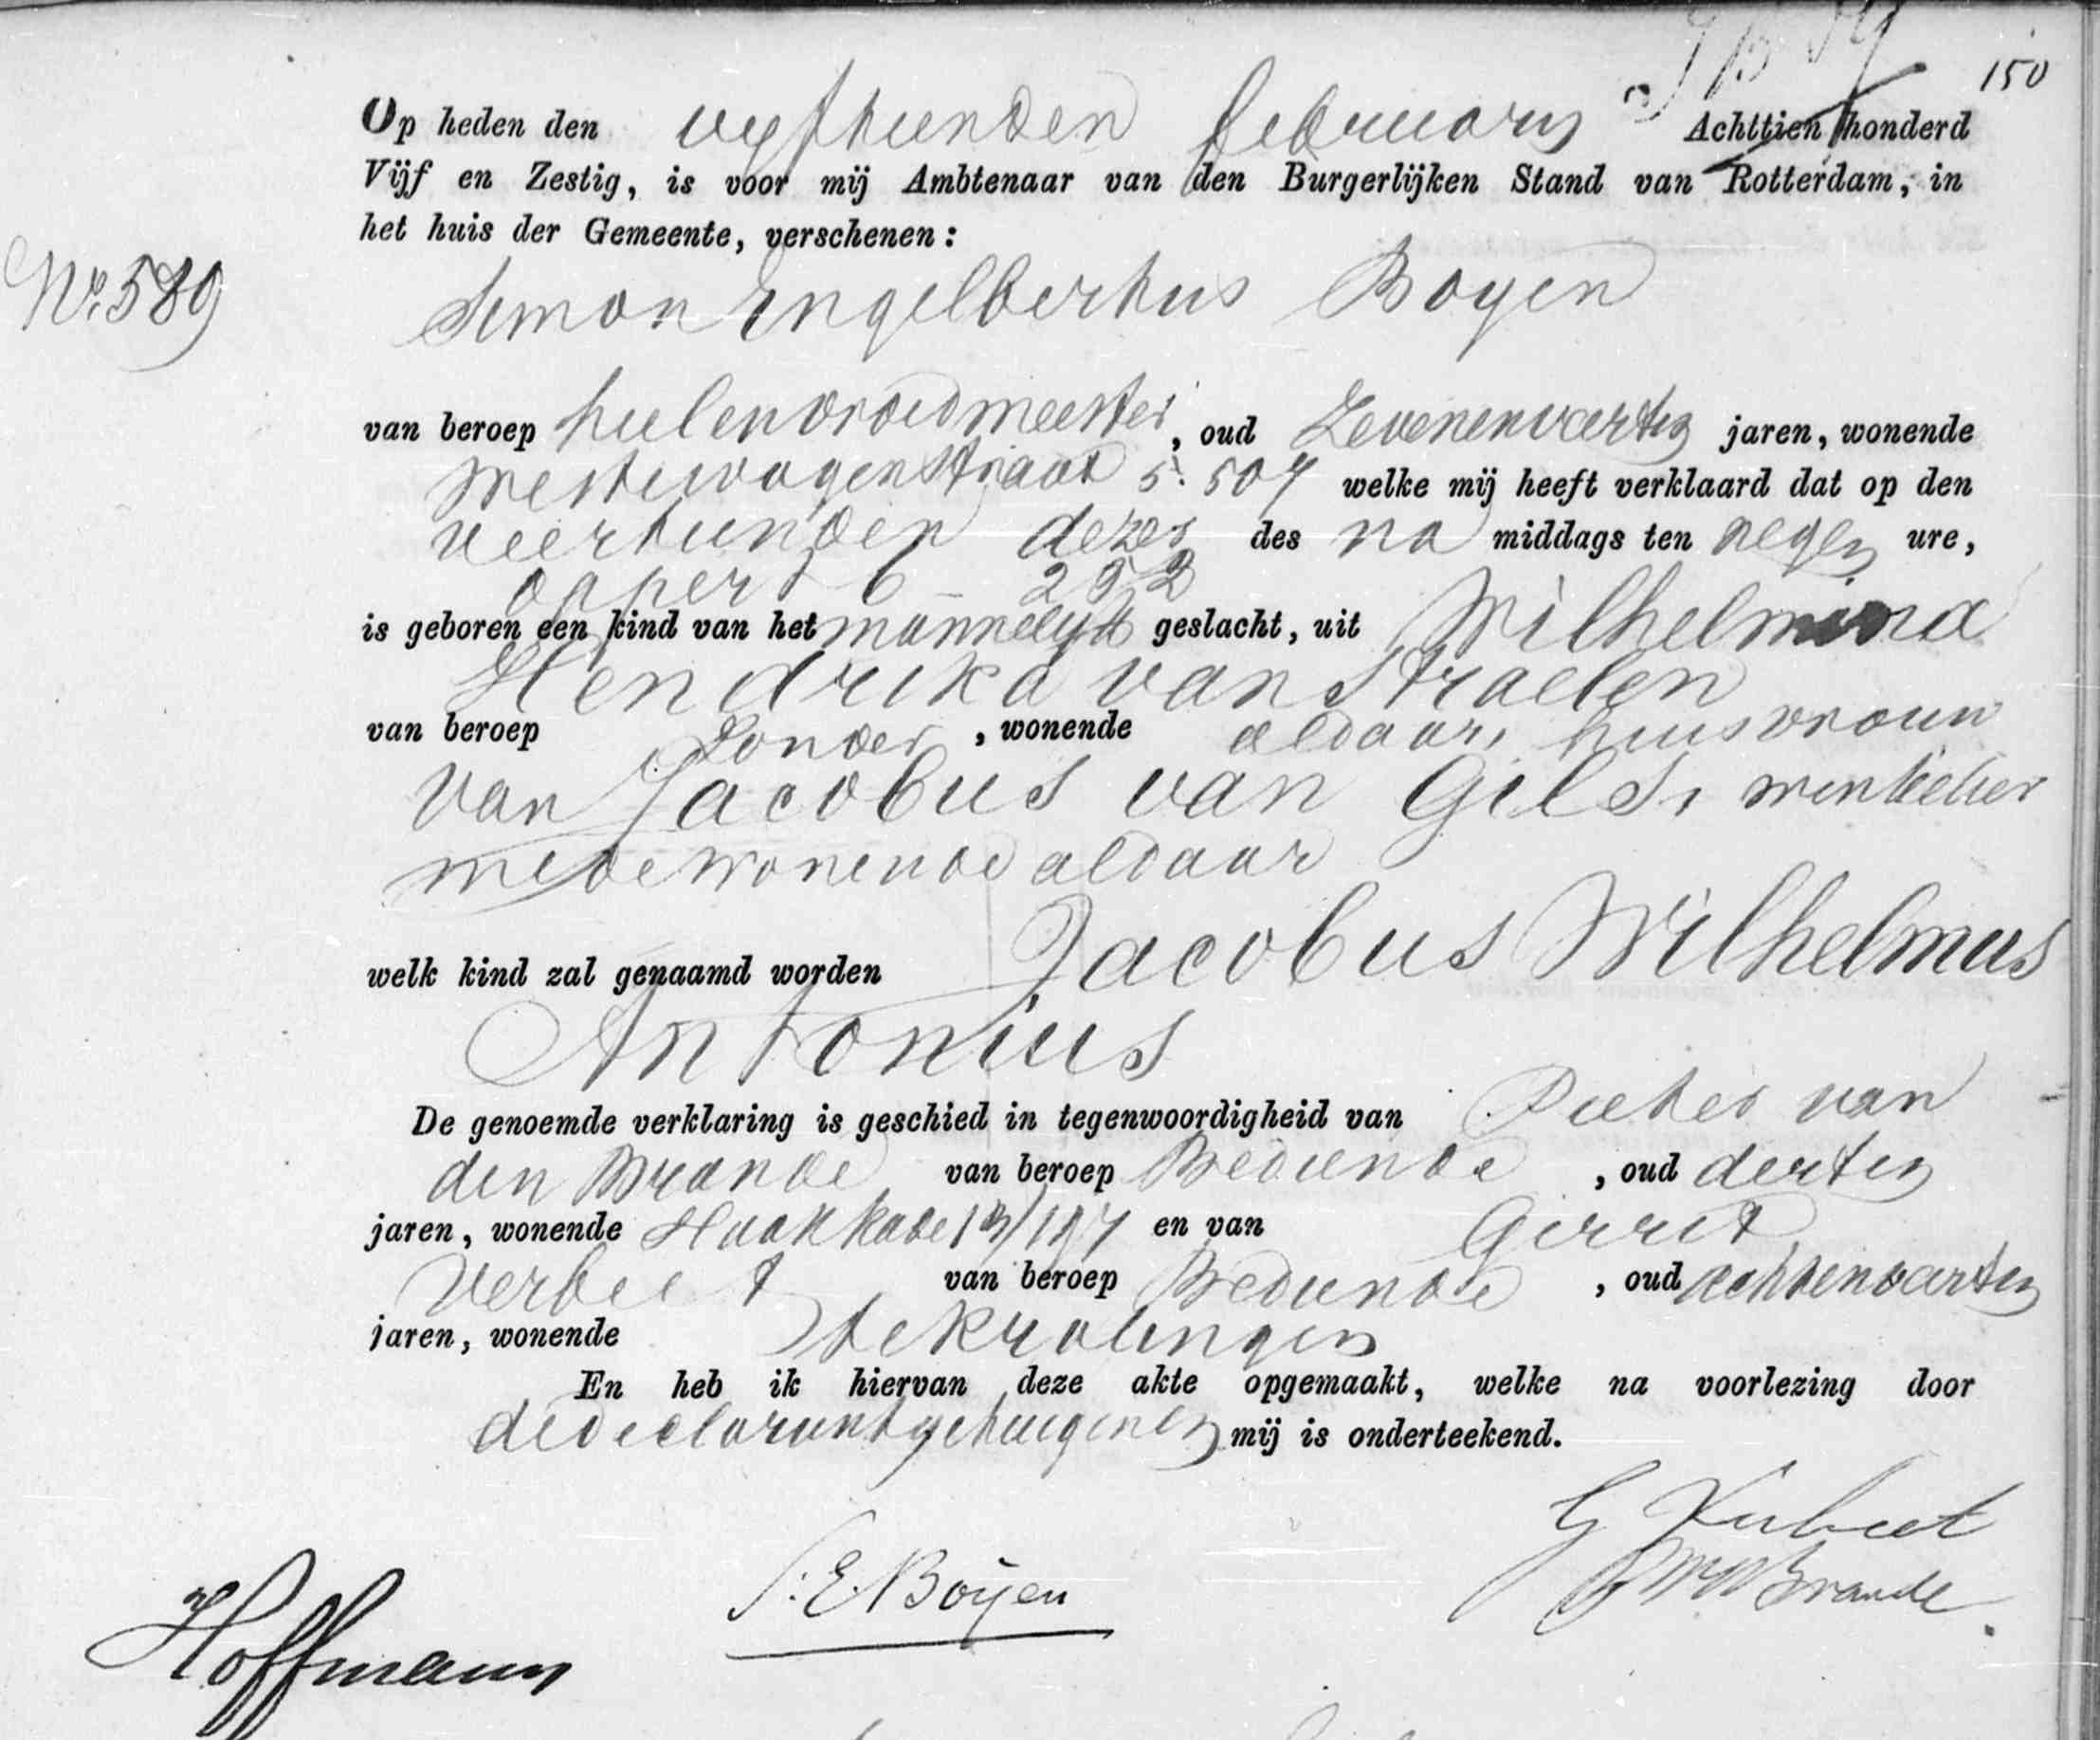 150
Op heden den vijftienden februarij Achttien honderd
Vijf en Zestig, is voor mij Ambtenaar van den Burgerlijken Stand van Rotterdam, in
het huis der Gemeente, verschenen:
No. 589
Simon Engelbertus Boyen
van beroep heelenvroedmeester, oud Zevenenveertig jaren, wonende
Westewagenstraat 5. 507 welke mij heeft verklaard dat op den
veertienden dezer des na middags ten negen ure,
oppert 6 252
is geboren een kind van het mannelijk geslacht, uit Wilhelmina
Hendrika van Straelen
van beroep Zonder, wonende aldaar, huisvrouw
van Jacobus van Gils, winkelier
medewonende aldaar
welk kind zal genaamd worden Jacobus Wilhelmus
Antonius
De genoemde verklaring is geschied in tegenwoordigheid van Pieter van
den Brande van beroep Bediende, oud dertig
jaren, wonende en van Gerrit
Verbeet van beroep Bediende, oud achtenveertig
jaren, wonende te Kralingen
En heb ik hiervan deze akte opgemaakt, welke na voorlezing door
de declarant getuigen en mij is onderteekend.
G Verbeet
S. E. Boÿen
Brande
Hoffmann